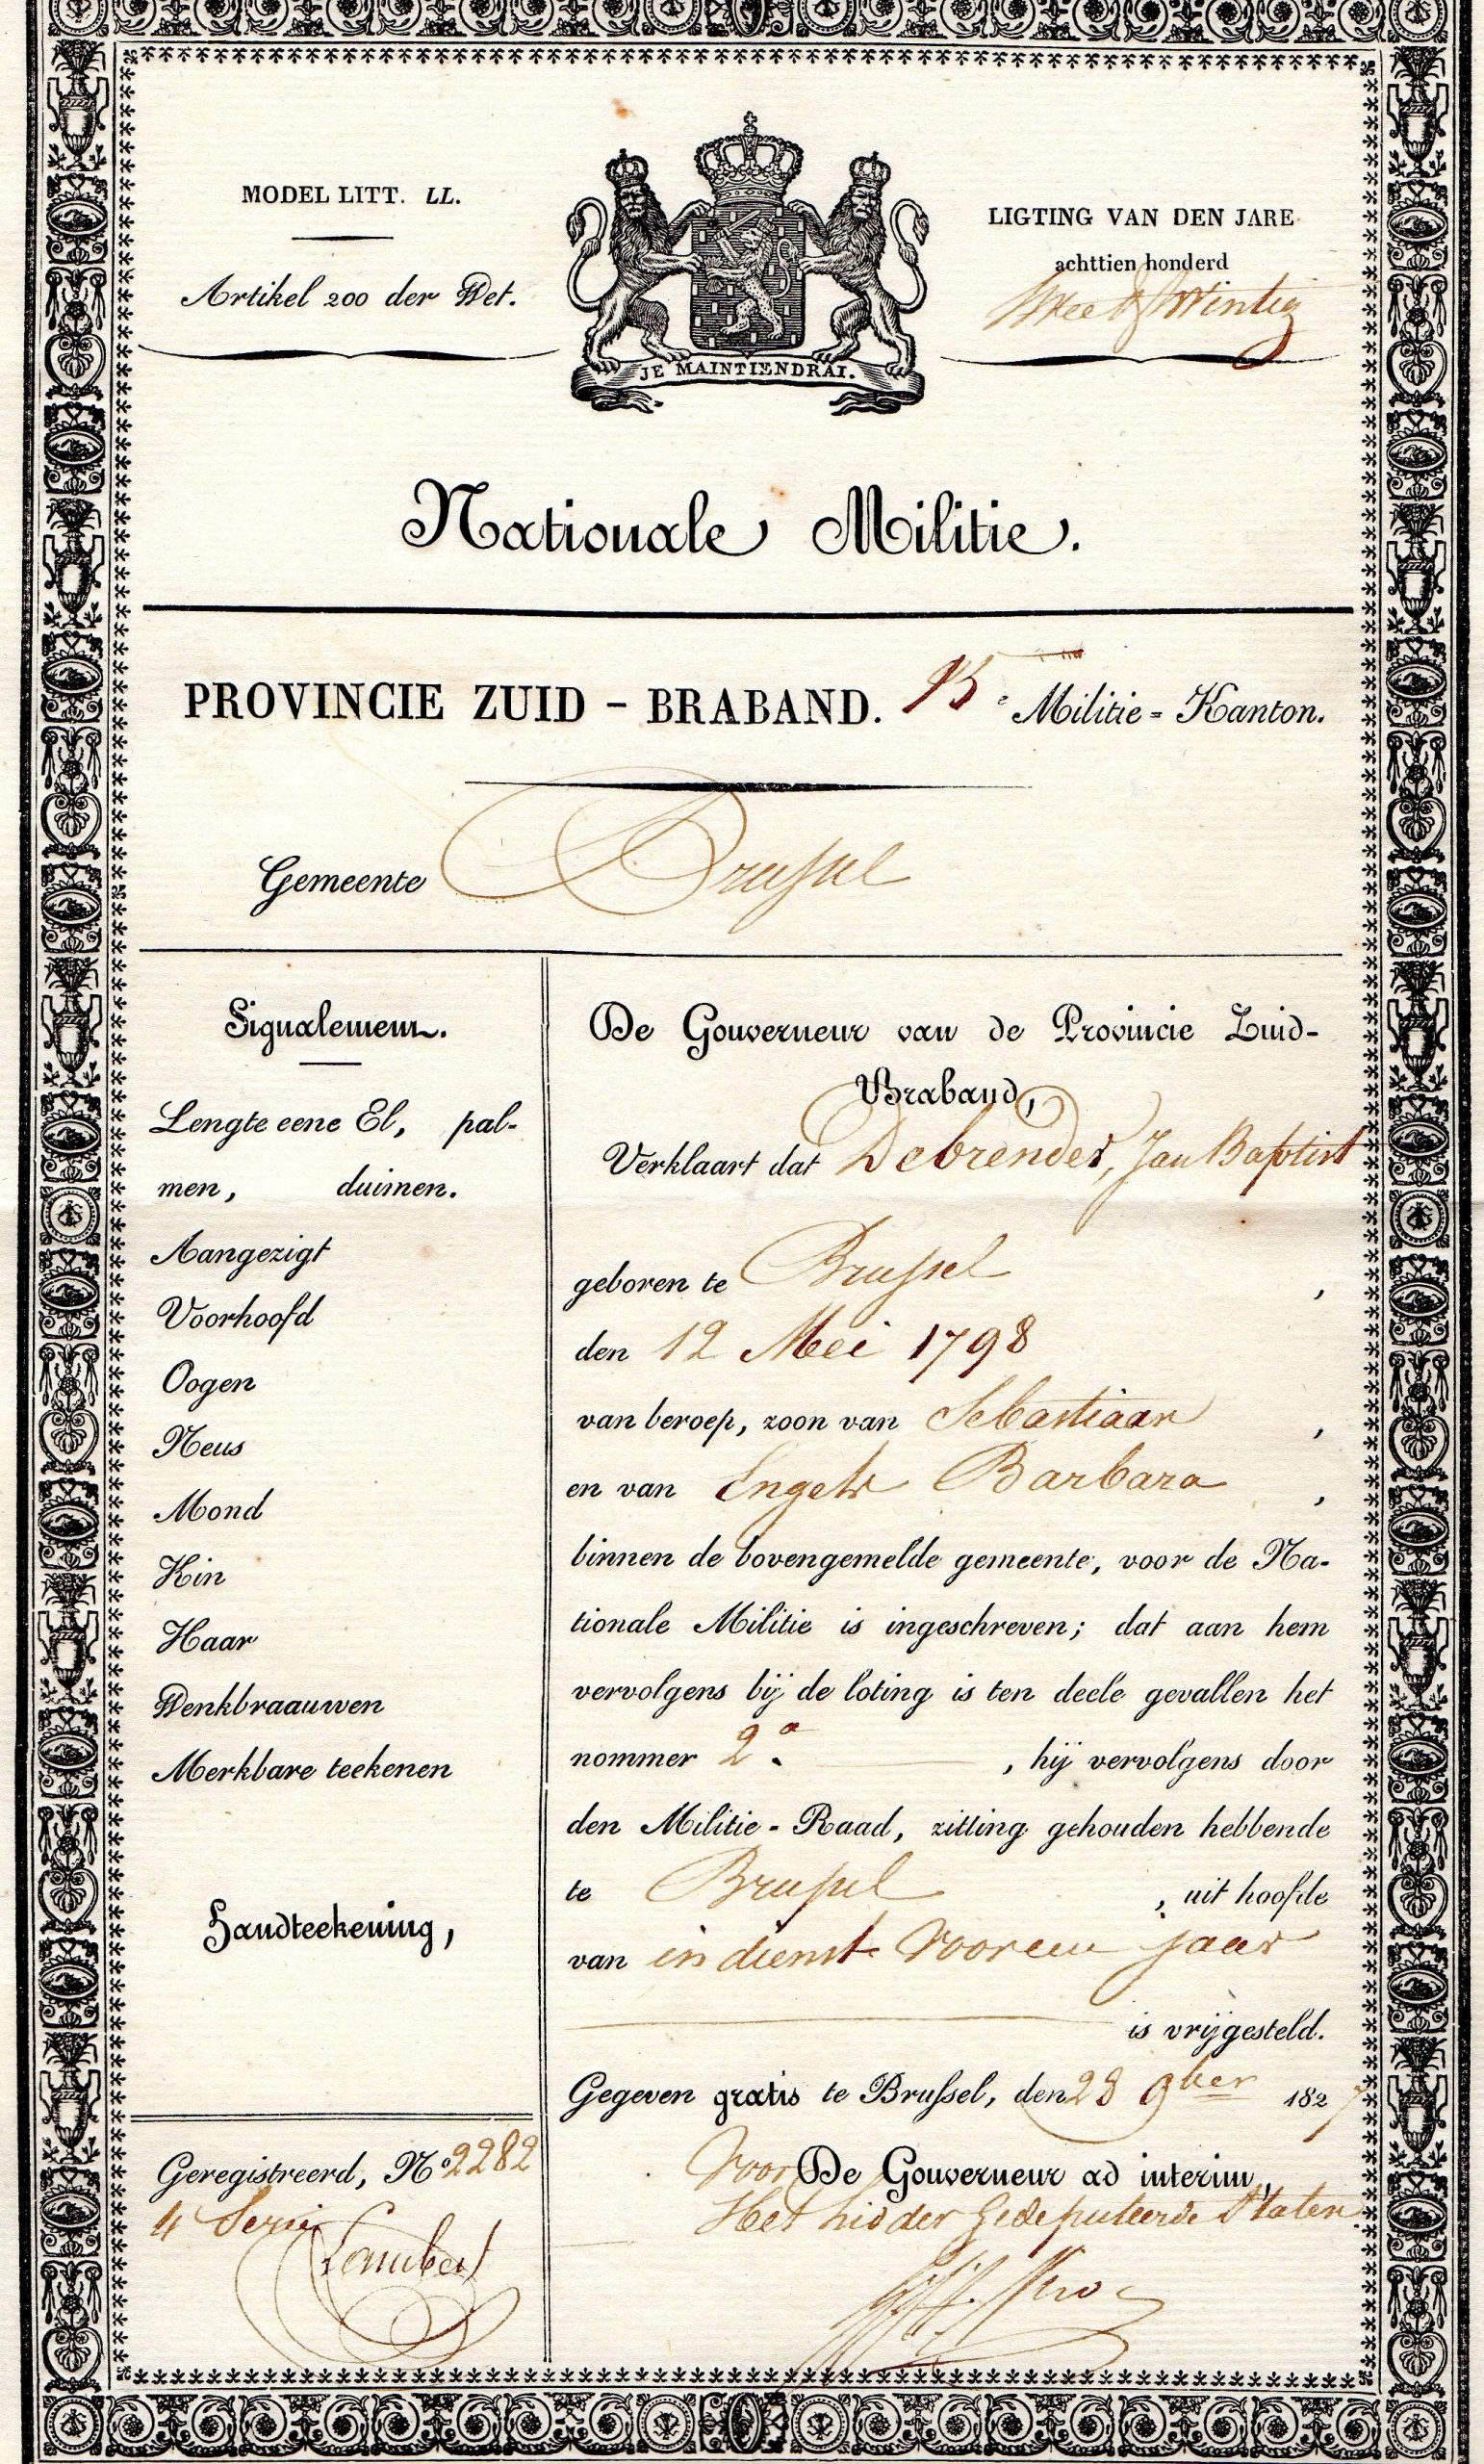 MODEL LITT. LL.
Artikel 200 der Wet.
JE MAINTIENDRAI.
LIGTING VAN DEN JARE
achttien honderd
twee & twintig
Nationale Militie.
PROVINCIE ZUID - BRABAND. Militie - Kanton.
Gemeente Brussel
Signalement.
Lengte eene El, pal-
men, duimen.
Aangezigt
Voorhoofd
Oogen
Neus
Mond
Kin
Haar
Wenkbraauwen
Merkbare teekenen
Handteekening,
Geregistreerd, No. 2282
4 Serie
Lambert
De Gouverneur van de Provincie Zuid-
Braband,
Verklaart dat Debrender, Jan Baptist
geboren te Brussel,
den 12 Mei 1798
van beroep, zoon van Sebastiaan,
en van Engels Barbara,
binnen de bovengemelde gemeente, voor de Na-
tionale Militie is ingeschreven; dat aan hem
vervolgens bij de loting is ten deele gevallen het
nommer 2a., hij vervolgens door
den Militie-Raad, zitting gehouden hebbende
te Brussel, uit hoofde
van in dienst voor een jaar
is vrijgesteld.
Gegeven gratis te Brussel, den 28 9ber 1827
Voor De Gouverneur ad interim,
Het lid der Gedeputeerde Staten